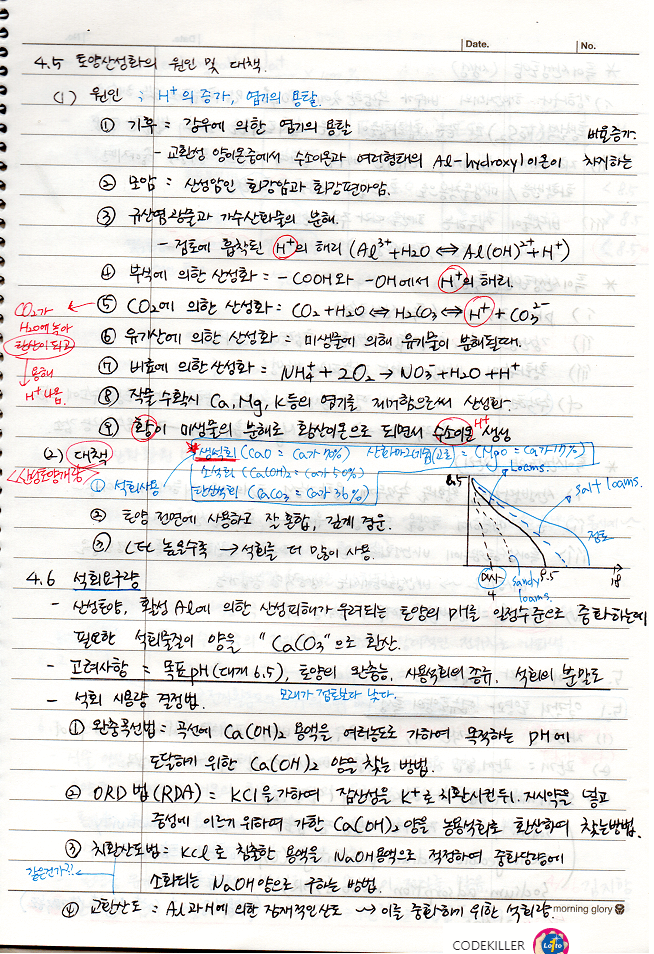 Date.
No.
4.5 토양산성화의 원인 및 대책.
(1) 원인 : H⁺의 증가, 염기의 용탈.
① 기후 = 강우에 의한 염기의 용탈
비율증가.
- 교환성 양이온중에서 수소이온과 여러형태의 Al-hydroxyl 이온이 차지하는
② 모암 = 산성암인 화강암과 화강편마암.
③ 규산염광물과 가수산화물의 분해.
- 점토에 흡착된 H⁺의 해리 (Al³⁺+H2O ⟺ Al(OH)²⁺+H⁺)
④ 부식에 의한 산성화 = -COOH와 -OH에서 H⁺의 해리.
⑤ CO2에 의한 산성화 : CO2+H2O ⟺ H2CO3 ⟺ H⁺ + CO3²⁻
CO2가
H2O에 녹아
탄산이 되고
↓ 용해
H⁺나옴.
⑥ 유기산에 의한 산성화 = 미생물에 의해 유기물이 분해될때.
⑦ 비료에 의한 산성화 = NH4⁺ + 2O2 → NO3⁻+H2O+H⁺
⑧ 작물 수확시 Ca, Mg, K등의 염기를 제거함으로써 산성화.
⑨ 황이 미생물의 분해로 황산이온으로 되면서 수소이온 H⁺ 생성
(2) 대책
<산성토양개량>
① 석회사용
생석회 (CaO = Ca가 70%) 산화마그네슘(고토) = (MgO = Ca가 17%)
소석회 (Ca(OH)2 = Ca가 50%)
탄산석회 (CaCO3 = Ca가 36%)
② 토양 전면에 사용하고 잘 혼합, 깊게 경운.
③ CEC 높을수록 → 석회를 더 많이 사용.
6.5
loams.
salt loams.
점토
sandy loams.
4
9.5
18
4.6 석회요구량
- 산성토양, 활성 Al에 의한 산성피해가 우려되는 토양의 pH를 일정수준으로 중화하는데
필요한 석회물질이 양을 "CaCO3"으로 환산.
- 고려사항 = 목표 pH(대개 6.5), 토양의 완충능, 사용석회의 종류, 석회의 분말도
모래가 점토보다 낮다.
- 석회 시용량 결정법.
① 완충곡선법 = 곡선에 Ca(OH)2 용액을 여러농도로 가하여 목적하는 pH에
도달하기 위한 Ca(OH)2 양을 찾는 방법.
② ORD법 (RDA) = KCl을 가하여 잠산성을 K⁺로 치환시킨뒤. 지시약을 넣고
중성에 이르기 위하여 가한 Ca(OH)2 양을 농용석회로 환산하여 찾는방법.
③ 치환산도법 = KCl로 침출한 용액을 NaOH용액으로 적정하여 중화당량에
소화되는 NaOH양으로 구하는 방법.
같은건가?!
④ 교환산도 = Al과 H에 의한 잠재적인산도 → 이를 중화하기 위한 석회량.
morning glory
CODEKILLER
Lotto